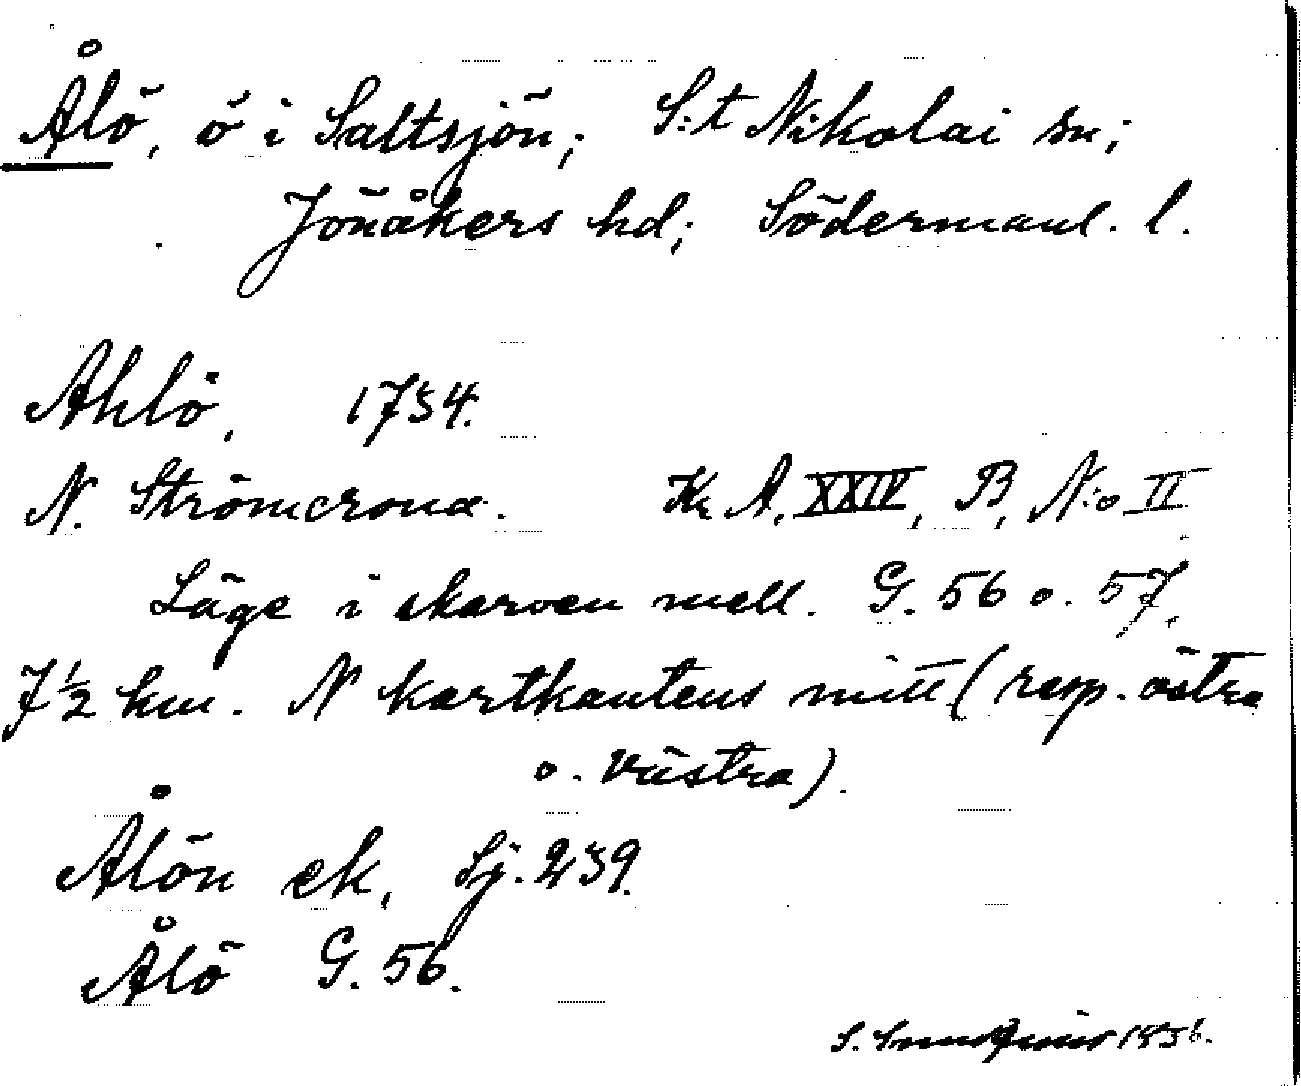 Ålö, ö i Saltsjön; S:t Nikolai sn;
Jönåkers hd; Södermanl. l.
Ahlö, 1734.
N. Strömcrona. Kr. A, XXIV, B, N:o II
Läge i skarven mell. G. 56 o. 57,
7½ km. N kartkantens mitt (resp. östra
o. västra).
Ålön ek, Sj. 239.
Ålö G. 56.
S. 1936.